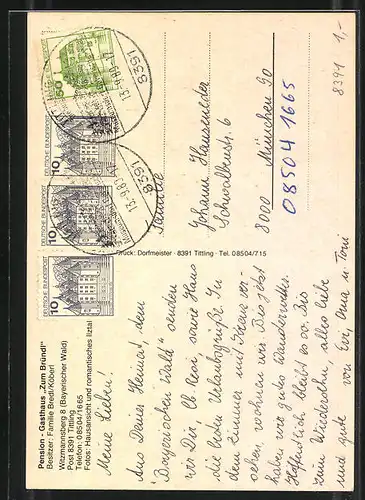 Pension - Gasthaus „Zum Bründl"
Besitzer: Familie Biedl/Köberl
Witzmannsberg 8 (Bayerischer Wald)
Post 8391 Tittling
Telefon: 08504/1665
Fotos: Hausansicht und romantisches Ilztal
Meine Lieben!
Aus Deiner Heimat, dem
"Bayerischen Wald" senden
wir Dir Ob Rosi, sowie Hans
die besten Urlaubsgrüße. In
dem Zimmer mit
sehen, wohnen wir. Bis jetzt
haben wir gutes Wanderwetter.
Hoffentlich bleibt es so. Bis
zum Wiedersehn, alles liebe
und gute von Evi, Oma u. Toni
Druck: Dorfmeister · 8391 Tittling · Tel. 08504/715
DEUTSCHE BUNDESPOST
50
DEUTSCHE BUNDESPOST
10
DEUTSCHE BUNDESPOST
10
DEUTSCHE BUNDESPOST
10
8391
13.-9.83-17
8391
13.-9.83
Familie
Johann Hausmeister
Schwalbenstr. 6
8000 München 90
08504 1665
8391 1,-